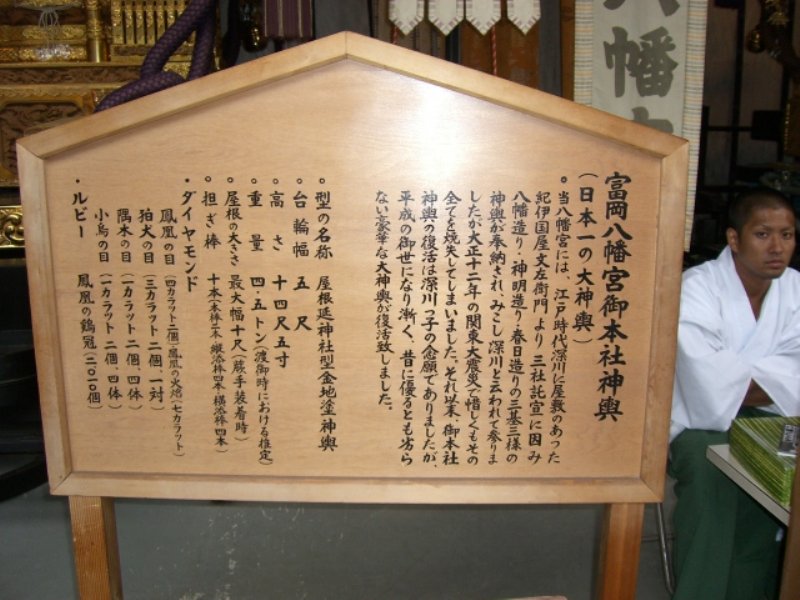 富岡八幡宮御本社神輿
(日本一の大神輿)
。当八幡宮には、江戸時代深川に屋敷のあった
紀伊国屋文左衛門より三社託宣に因み
八幡造り・神明造り・春日造りの三基三様の
神輿が奉納され、みこし深川と云われて参りま
したが大正十二年の関東大震災で惜しくもその
全てを焼失してしまいました。それ以来、御本社
神輿の復活は深川っ子の念願でありましたが、
平成の御世になり漸く、昔に優るとも劣ら
ない豪華な大神輿が復活致しました。
。型の名称 屋根延神社型金地塗神輿
。台輪幅 五尺
。高さ 十四尺五寸
。重量 四・五トン(渡御時における推定)
。屋根の大きさ 最大幅十尺(蕨手装着時)
。担ぎ棒 十本(本棒二本 縦添棒四本 横添棒四本)
・ダイヤモンド
鳳凰の目 (四カラット二個)鳳凰の火焔(七カラット)
狛犬の目 (三カラット二個、一対)
隅木の目 (一カラット二個、四体)
小鳥の目 (一カラット二個、四体)
・ルビー 鳳凰の鶏冠(二〇一〇個)
八幡